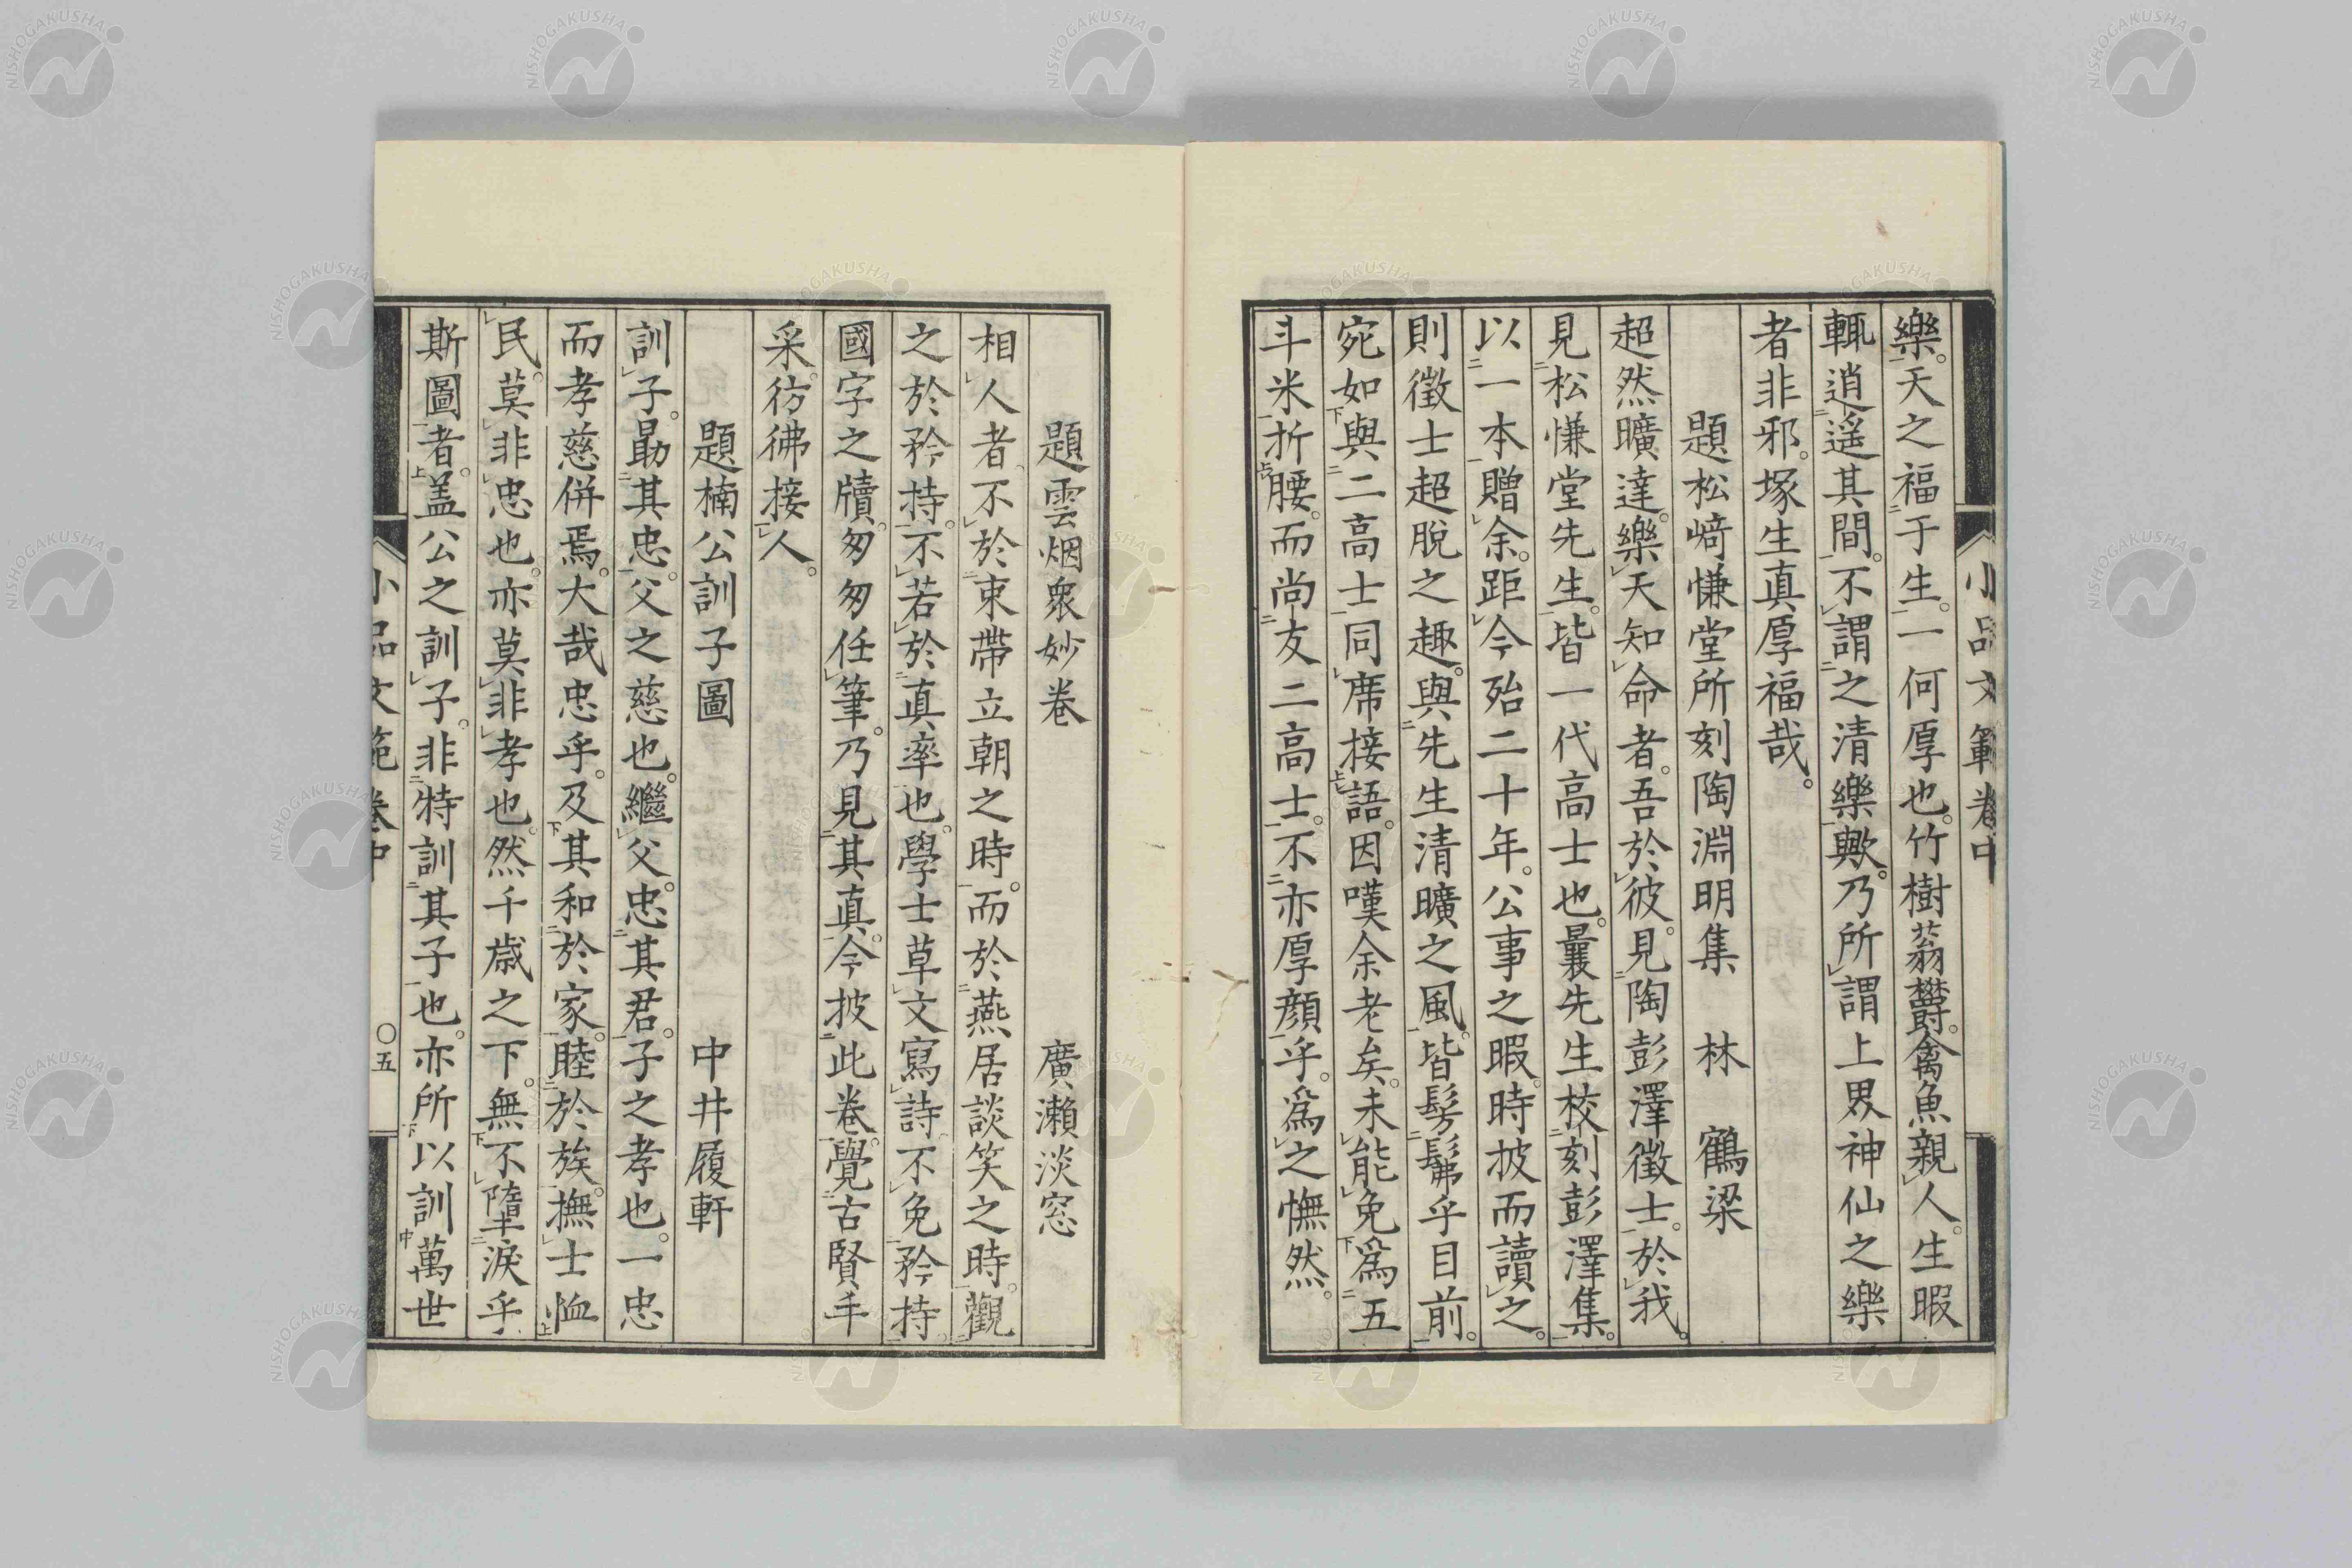 小品文範卷中
樂。天之福于生。一何厚也。竹樹蓊欝。禽魚親人。生暇
輒逍遥其間。不謂之清樂歟。乃所謂上界神仙之樂
者非邪。塚生真厚福哉。
題松﨑慊堂所刻陶淵明集 林 鶴梁
超然曠達。樂天知命者。吾於彼。見陶彭澤徵士。於我。
見松慊堂先生。皆一代高士也。曩先生校刻彭澤集。
以一本贈余。距今殆二十年。公事之暇。時披而讀之。
則徵士超脫之趣。與先生清曠之風。皆髣髴乎目前。
宛如與二高士同席接語。因嘆余老矣。未能免爲五
斗米折腰。而尚友二高士。不亦厚顔乎。爲之憮然。
題雲烟衆妙卷 廣瀨淡窓
相人者。不於束帶立朝之時。而於燕居談笑之時。觀
之於矜持。不若於真率也。學士草文寫詩。不免矜持。
國字之牘。匆匆任筆。乃見其真。今披此卷。覺古賢手
采。彷彿接人。
題楠公訓子圖 中井履軒
訓子。勗其忠。父之慈也。繼父忠。忠其君。子之孝也。一忠
而孝慈併焉。大哉忠乎。及其和於家。睦於族。撫士恤
民。莫非忠也。亦莫非孝也。然千歲之下。無不墮淚乎
斯圖者。盖公之訓子。非特訓其子也。亦所以訓萬世
小品文範卷中 〇五
NISHOGAKUSHA